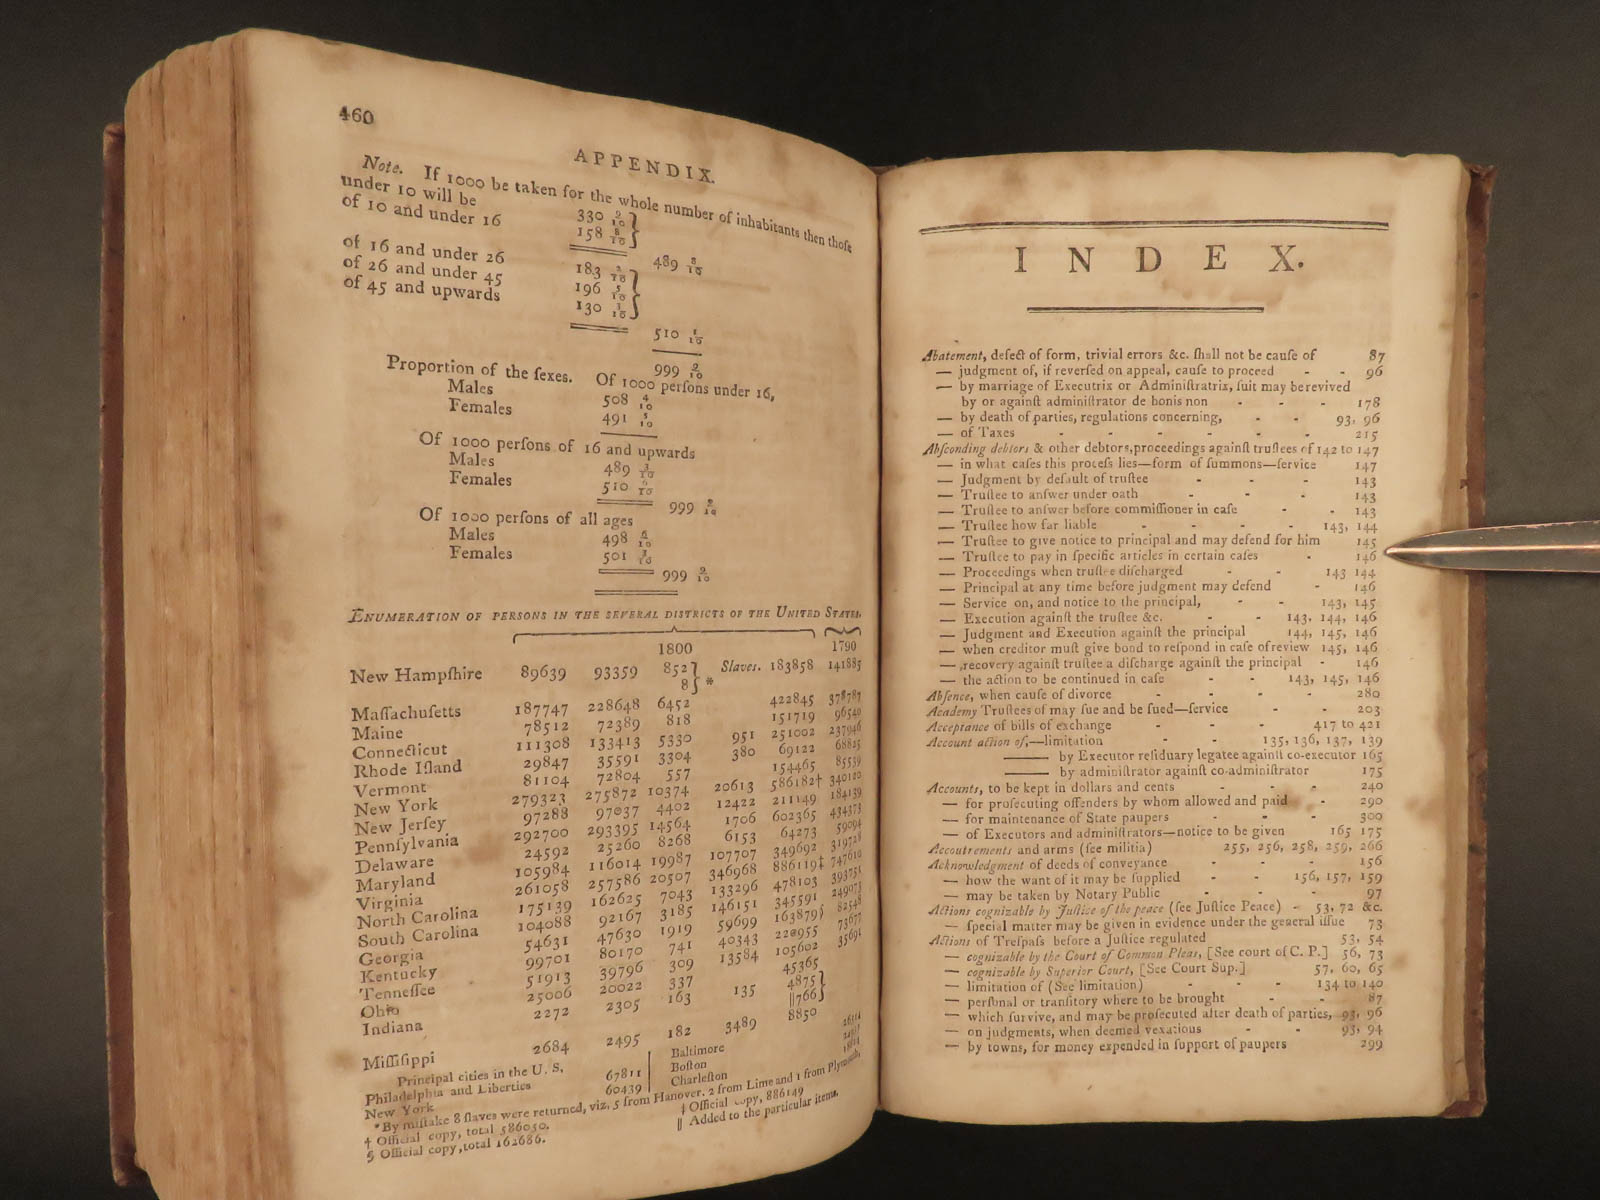 460
APPENDIX.
Note. If 1000 be taken for the whole number of inhabitants then thoſe
under 10 will be 330 9/10 }
of 10 and under 16 158 8/10 }
489 8/10
of 16 and under 26 183 2/10 }
of 26 and under 45 196 5/10 }
of 45 and upwards 130 3/10 }
510 1/10
999 9/10
Proportion of the ſexes. Of 1000 perſons under 16,
Males 508 4/10
Females 491 5/10
Of 1000 perſons of 16 and upwards
Males 489 3/10
Females 510 6/10
999 9/10
Of 1000 perſons of all ages
Males 498 6/10
Females 501 3/10
999 9/10
ENUMERATION OF PERSONS IN THE SEVERAL DISTRICTS OF THE UNITED STATES.
1800 1790
New Hampſhire 89639 93359 852 } Slaves. 183858 141885
8 } *
Maſſachuſetts 187747 228648 6452 422845 378787
Maine 78512 72389 818 151719 96540
Connecticut 111308 133413 5330 951 251002 237946
Rhode Iſland 29847 35591 3304 380 69122 68825
Vermont 81104 72804 557 154465 85539
New York 279323 275872 10374 20613 586182† 340120
New Jerſey 97288 97037 4402 12422 211149 184139
Pennſylvania 292700 293395 14564 1706 602365 434373
Delaware 24592 25260 8268 6153 64273 59094
Maryland 105984 116014 19987 107707 349692 319728
Virginia 261058 257586 20507 346968 886119‡ 747610
North Carolina 175139 162625 7043 133296 478103 393751
South Carolina 104088 92167 3185 146151 345591 249073
Georgia 54631 47630 1919 59699 163879§ 82548
Kentucky 99701 80170 741 40343 220955 73677
Tenneſſee 51913 39796 309 13584 105602 35691
Ohio 25006 20022 337 45365
Indiana 2272 2305 163 135 4875 }
||766 }
Miſſiſippi 2684 2495 182 3489 8850
Principal cities in the U. S,
Philadelphia and Liberties 67811 Baltimore
New York 60439 Boſton
Charleſton
*By miſtake 8 ſlaves were returned, viz. 5 from Hanover. 2 from Lime and 1 from Plymouth.
† Official copy, total 586050. ‡ Official copy, 886149
§ Official copy, total 162686. || Added to the particular items.
INDEX.
Abatement, defect of form, trivial errors &c. ſhall not be cauſe of 87
— judgment of, if reverſed on appeal, cauſe to proceed - - 96
— by marriage of Executrix or Adminiſtratrix, ſuit may be revived
by or againſt adminiſtrator de bonis non - - - 178
— by death of parties, regulations concerning, - - 93, 96
— of Taxes - - - - - - 215
Abſconding debtors & other debtors, proceedings againſt truſtees of 142 to 147
— in what caſes this proceſs lies—form of ſummons—ſervice 147
— Judgment by default of truſtee - - - 143
— Truſtee to anſwer under oath - - - 143
— Truſtee to anſwer before commiſſioner in caſe - - 143
— Truſtee how far liable - - - - 143, 144
— Truſtee to give notice to principal and may defend for him 145
— Truſtee to pay in ſpecific articles in certain caſes - 146
— Proceedings when truſtee diſcharged - - 143 144
— Principal at any time before judgment may defend - 146
— Service on, and notice to the principal, - - 143, 145
— Execution againſt the truſtee &c. - - 143, 144, 146
— Judgment and Execution againſt the principal 144, 145, 146
— when creditor muſt give bond to reſpond in caſe of review 145, 146
— recovery againſt truſtee a diſcharge againſt the principal - 146
— the action to be continued in caſe - - 143, 145, 146
Abſence, when cauſe of divorce - - - - 280
Academy Truſtees of may ſue and be ſued—ſervice - - 203
Acceptance of bills of exchange - - - 417 to 421
Account action of,—limitation - - 135, 136, 137, 139
—— by Executor reſiduary legatee againſt co-executor 165
—— by adminiſtrator againſt co-adminiſtrator 175
Accounts, to be kept in dollars and cents - - - 240
— for proſecuting offenders by whom allowed and paid - 290
— for maintenance of State paupers - - - 300
— of Executors and adminiſtrators—notice to be given 165 175
Accoutrements and arms (ſee militia) 255, 256, 258, 259, 266
Acknowledgment of deeds of conveyance - - - 156
— how the want of it may be ſupplied - - 156, 157, 159
— may be taken by Notary Public - - - 97
Actions cognizable by Juſtice of the peace (ſee Juſtice Peace) - 53, 72 &c.
— ſpecial matter may be given in evidence under the general iſſue 73
Actions of Treſpaſs before a Juſtice regulated 53, 54
— cognizable by the Court of Common Pleas, [See court of C. P.] 56, 73
— cognizable by Superior Court, [See Court Sup.] 57, 60, 65
— limitation of (See limitation) - - - 134 to 140
— perſonal or tranſitory where to be brought - - 87
— which ſurvive, and may be proſecuted after death of parties, 93, 96
— on judgments, when deemed vexatious - - 93, 94
— by towns, for money expended in ſupport of paupers 299